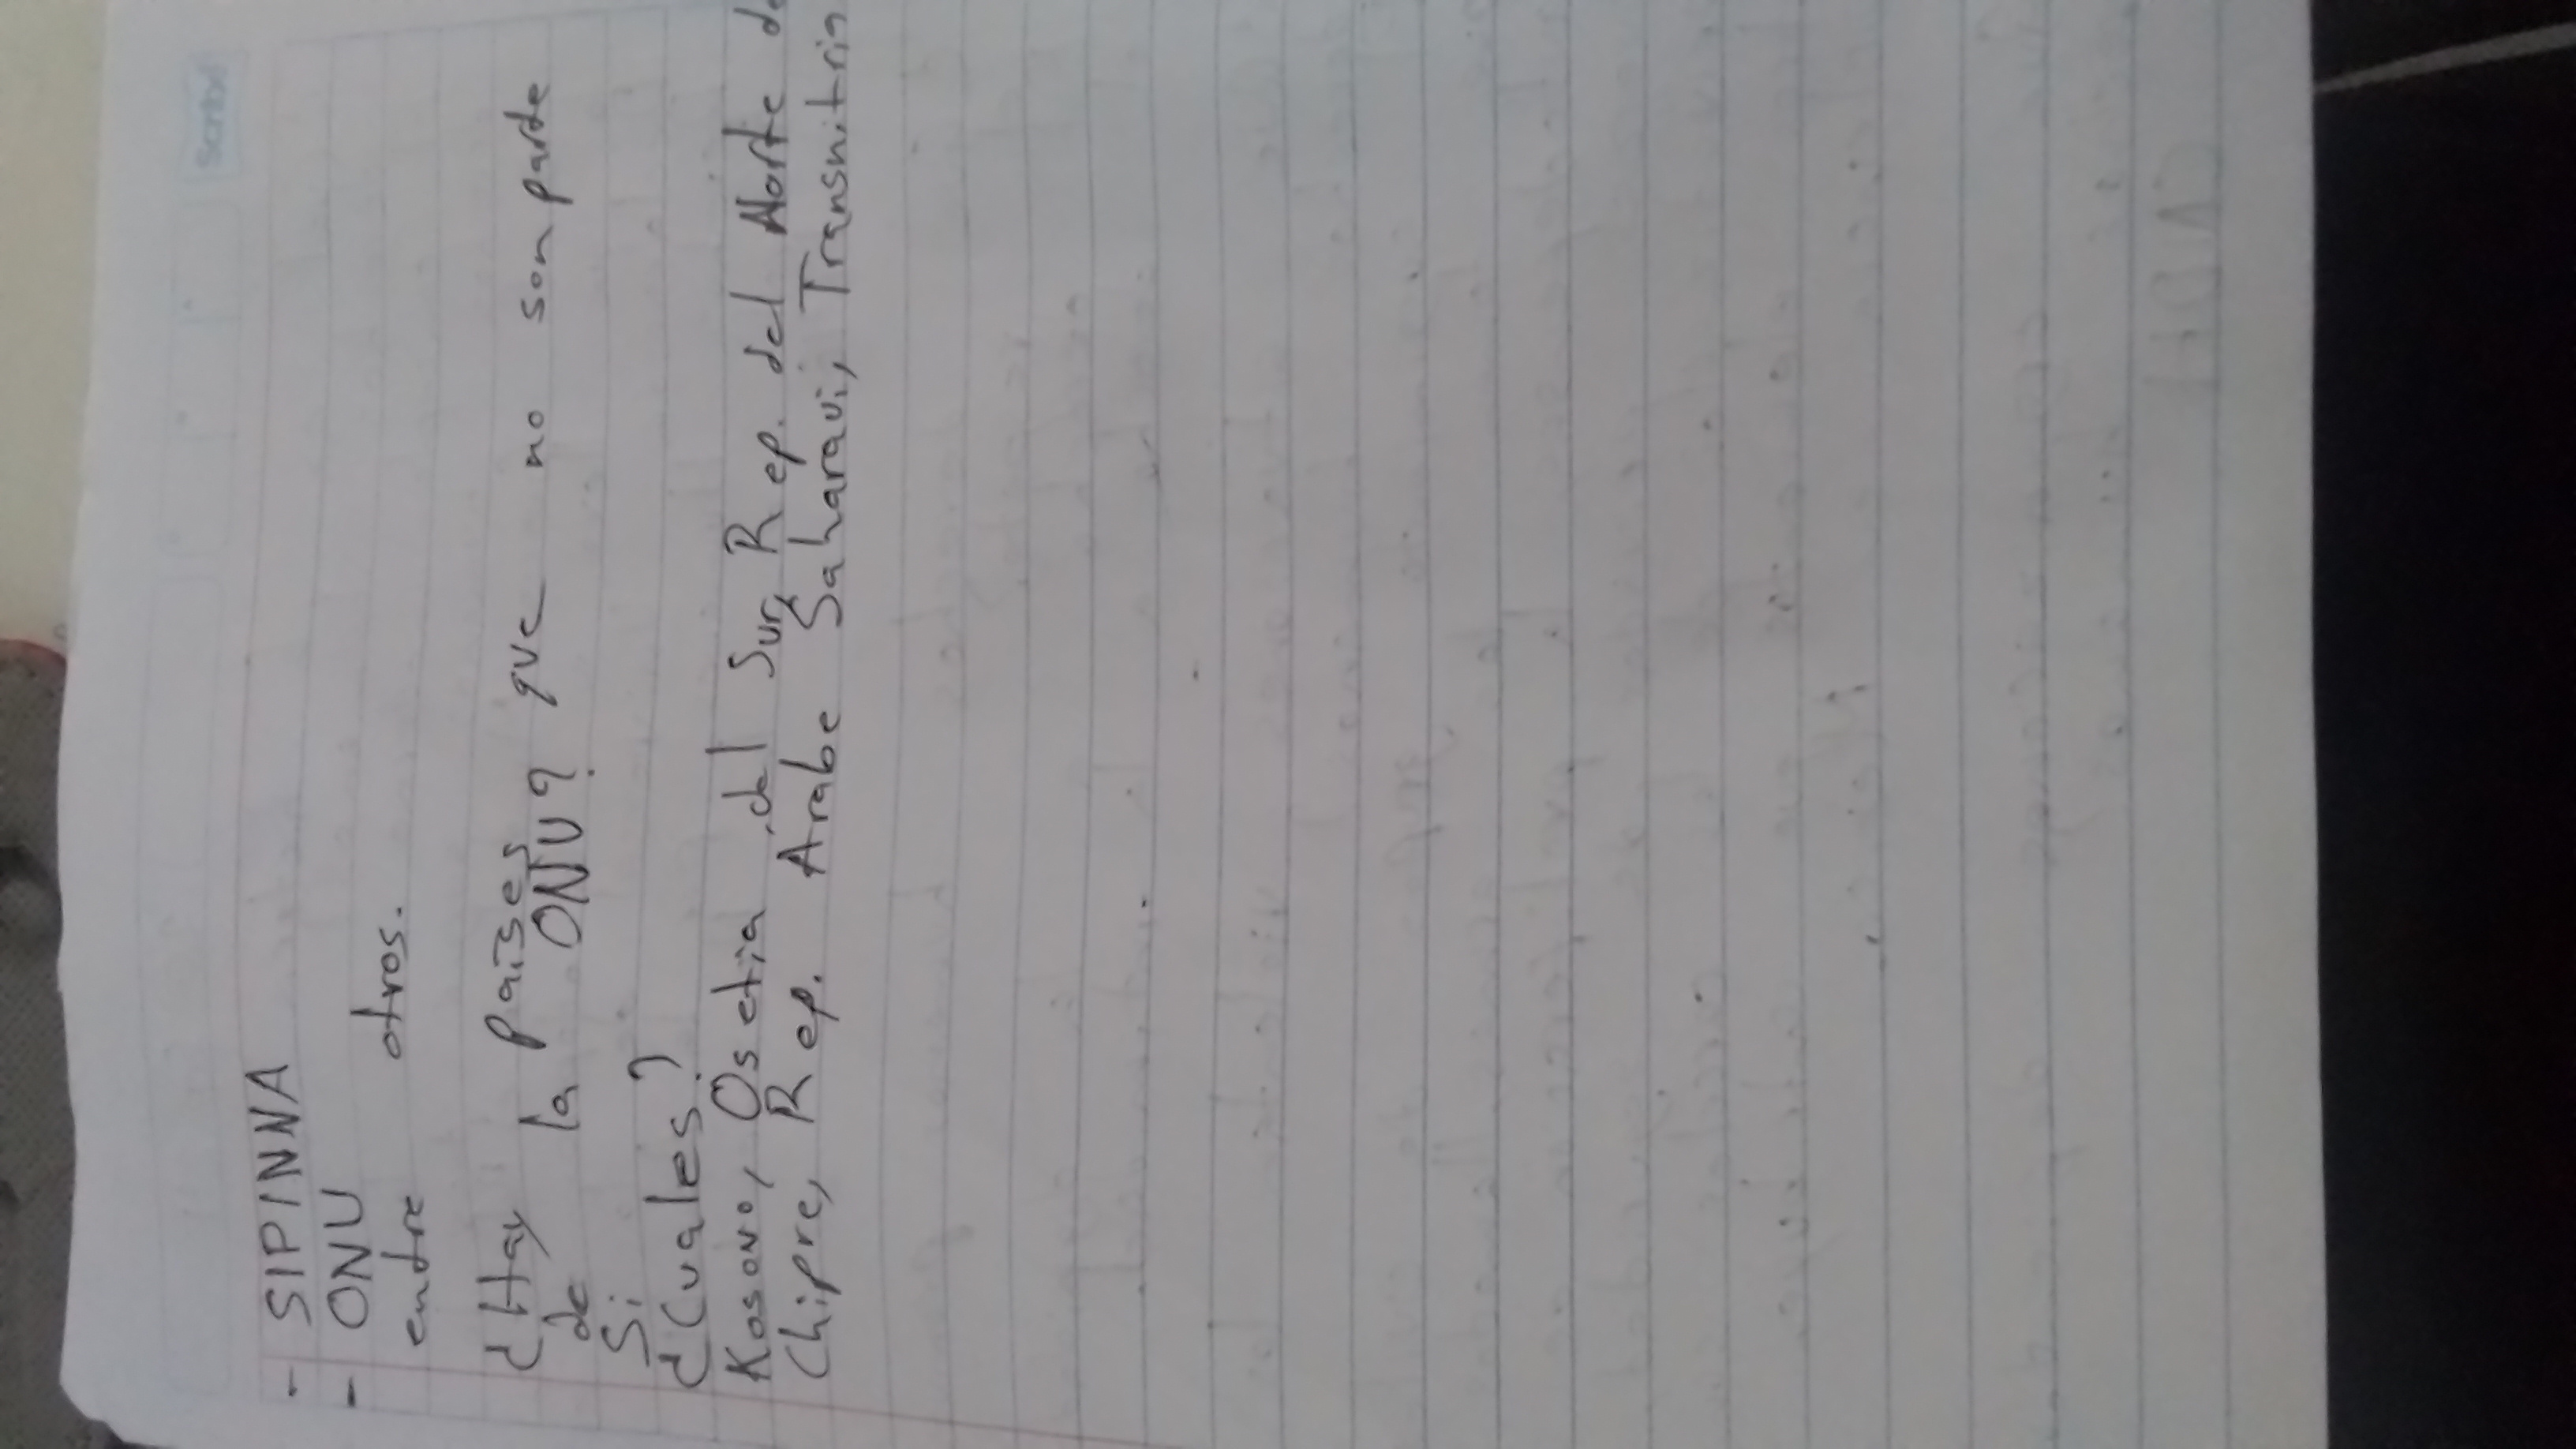 Scribe
- SIPINNA
- ONU
entre otros.
¿Hay países que no son parte
de la ONU?
Si
¿Cuales?
Kosovo, Osetia del Sur, Rep. del Norte de
Chipre, Rep. Arabe Saharaui, Transnitria